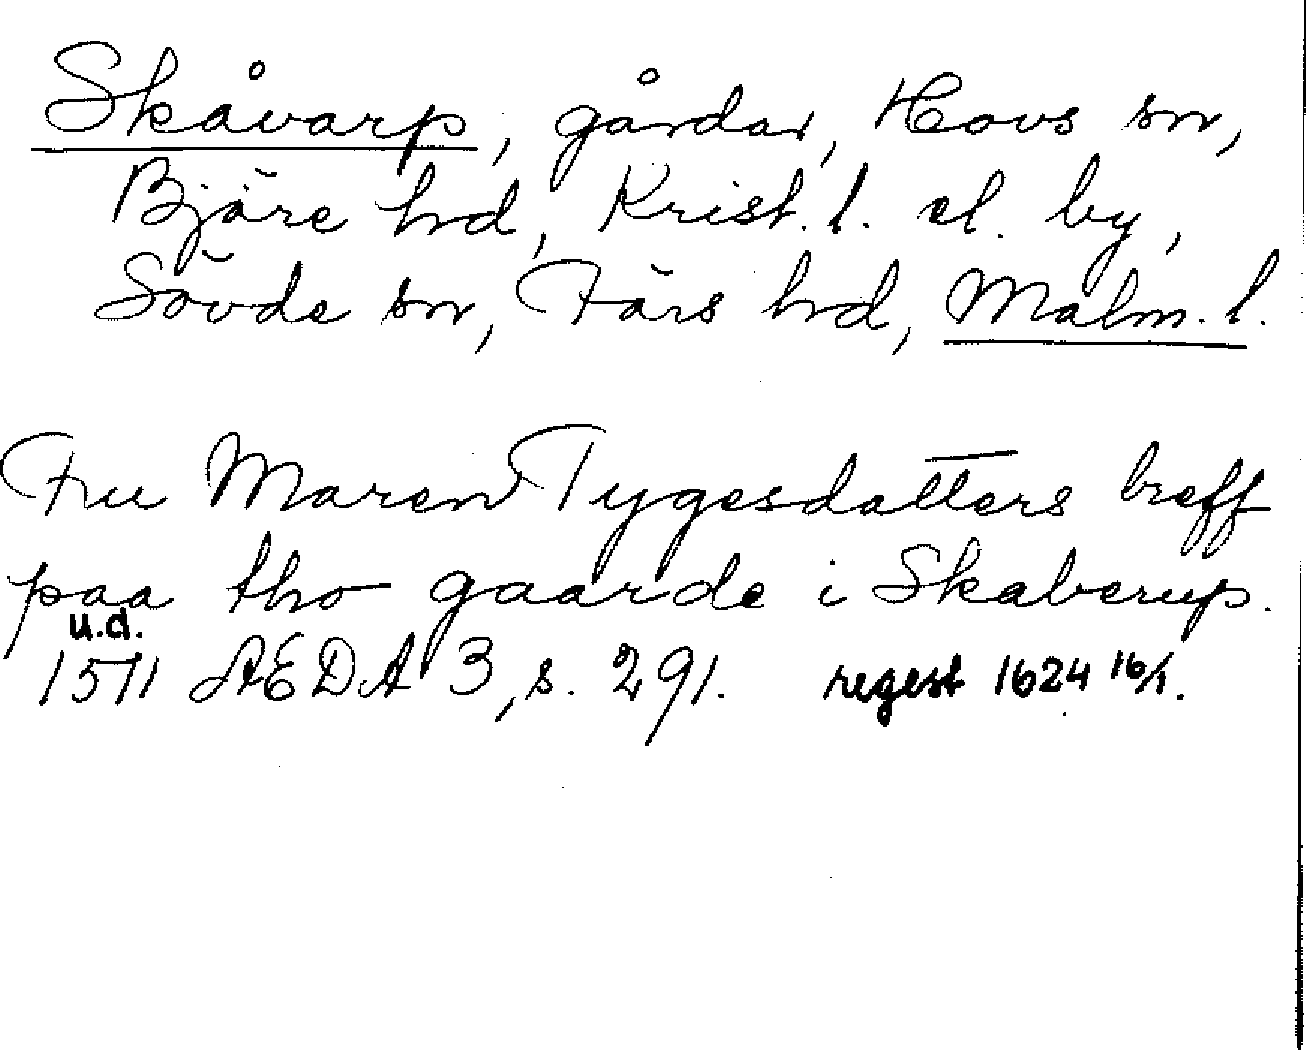 Skåvarp, gårdar, Hovs sn,
Bjäre hd, Krist. l. el. by,
Sövde sn, Färs hd, Malm. l.
Fru Maren Tygesdatters breff
paa tho gaarde i Skaberup.
u.d.
1571 ÆDA 3, s. 291. regest 1624 16/1.